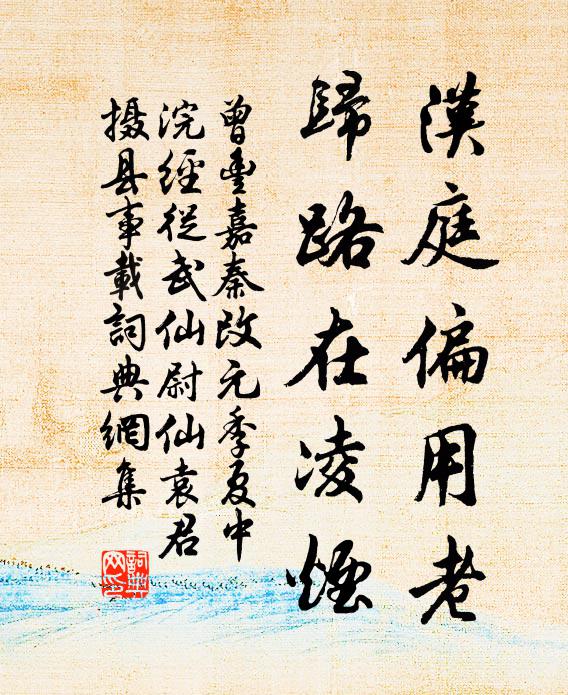 漢庭偏用老
歸路在凌煙
曾豐嘉泰改元季夏中
浣經從武仙尉仙袁君
摄县事載詞典網集
詞典网印